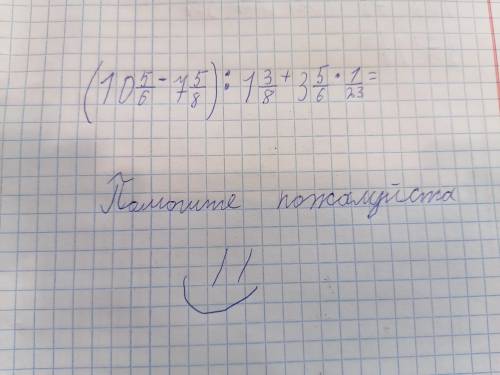 (10 5/6 - 7 5/8) : 1 3/8 + 3 5/6 · 1/23 =
Помогите пожалуйста